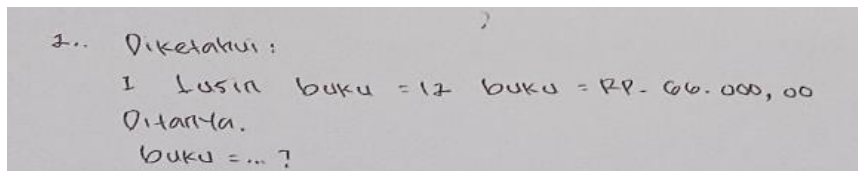 1.. Diketahui:
1 Lusin buku = 12 buku = Rp. 66.000,00
Ditanya.
buku = ... ?